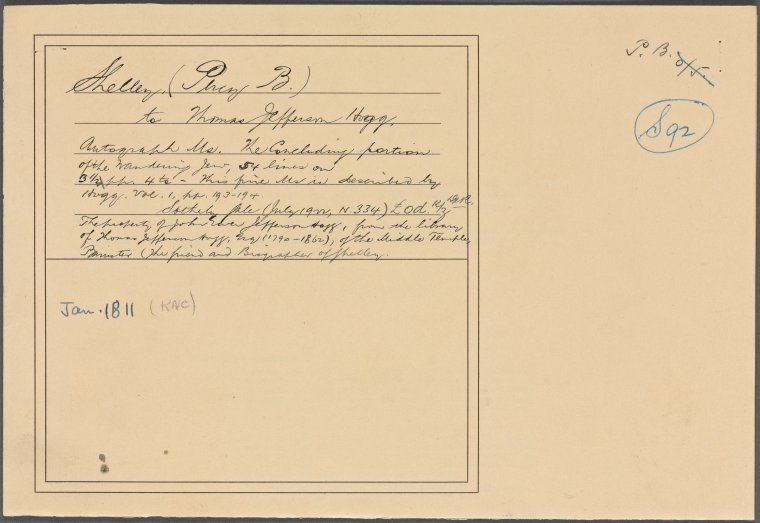 P. B.
S 92
Shelley, (Percy B.)
to Thomas Jefferson Hogg.
Autograph Ms. The Concluding portion
of the Wandering Jew, 54 lines on
3½ pp. 4to - This fine Ms is described by
Hogg. Vol. 1, pp. 193-194
Sotheby Sale (July 1922, N 334) £ od.
The property of John Jefferson Hogg, from the library
of Thomas Jefferson Hogg, Esq (1790-1862), of the Middle Temple,
Barrister (The friend and Biographer of Shelley.
Jan. 1811 (KNC)